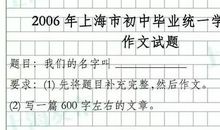 2006年上海市初中毕业统一学
作文试题
题目：我们的名字叫
要求：(1)先将题目补充完整,然后作文。
(2)写一篇600字左右的文章。